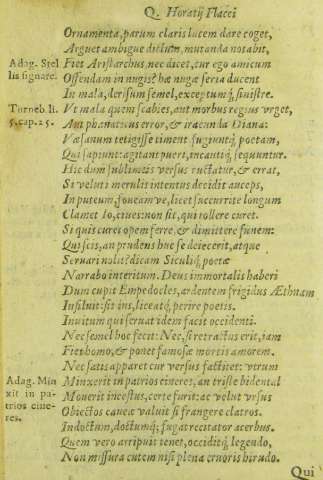 Q. Horatij Flacci
Ornamenta, parum claris lucem dare coget,
Arguet ambigue dictum, mutanda notabit,
Adag. Stel
Fiet Aristarchus, nec dicet, cur ego amicum
lis signare.
Offendam in nugis? hæ nugæ seria ducent
In mala, derisum semel, exceptumq́, sinistre.
Turneb. li.
Vt mala quem scabies, aut morbus regius vrget,
5. cap. 25.
Aut phanaticus error, & iracunda Diana:
Væsanum tetigisse timent fugiuntq́, poetam,
Qui sapiunt: agitant pueri, incautiq́, sequuntur.
Hic dum sublimeis versus ructatur, & errat,
Si veluti merulis intentus decidit auceps,
In puteum, foueamve, licet succurrite longum
Clamet Io, ciues: non sit, qui tollere curet.
Si quis curet opem ferre, & dimittere funem:
Qui scis, an prudens huc se deiecerit, atque
Seruari nolit? dicam Siculiq́, poetæ
Narrabo interitum. Deus immortalis haberi
Dum cupit Empedocles, ardentem frigidus Æthnam
Insiluit: sit ius, liceatq́, perire poetis.
Inuitum qui seruat idem facit occidenti.
Nec semel hoc fecit: Nec, si retractus erit, iam
Fiet homo, & ponet famosæ mortis amorem.
Nec satis apparet cur versus factitet: vtrum
Adag. Min
Minxerit in patrios cineres, an triste bidental
xit in pa-
Mouerit incestus, certe furit: ac velut vrsus
trios cine-
Obiectos caueæ valuit si frangere clatros.
res.
Indoctum, doctumq́; fugat recitator acerbus.
Quem vero arripuit tenet, occiditq́, legendo,
Non missura cutem nisi plena cruoris hirudo.
Qui